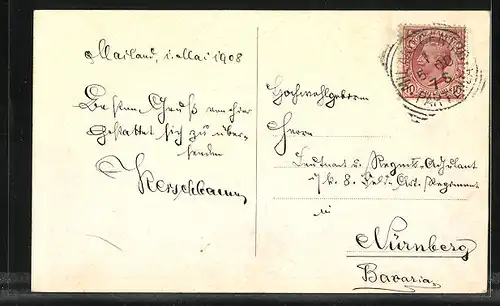 Mailand, i. Mai 1908
Besten Gruß von hier
gestattet sich zu über-
senden
Kerschbaum
Hochwohlgeboren
Herrn
Leutnant u. Regmts-Adjutant
i/k. 8. Feld-Art. Regiment
in
Nürnberg
Bavaria